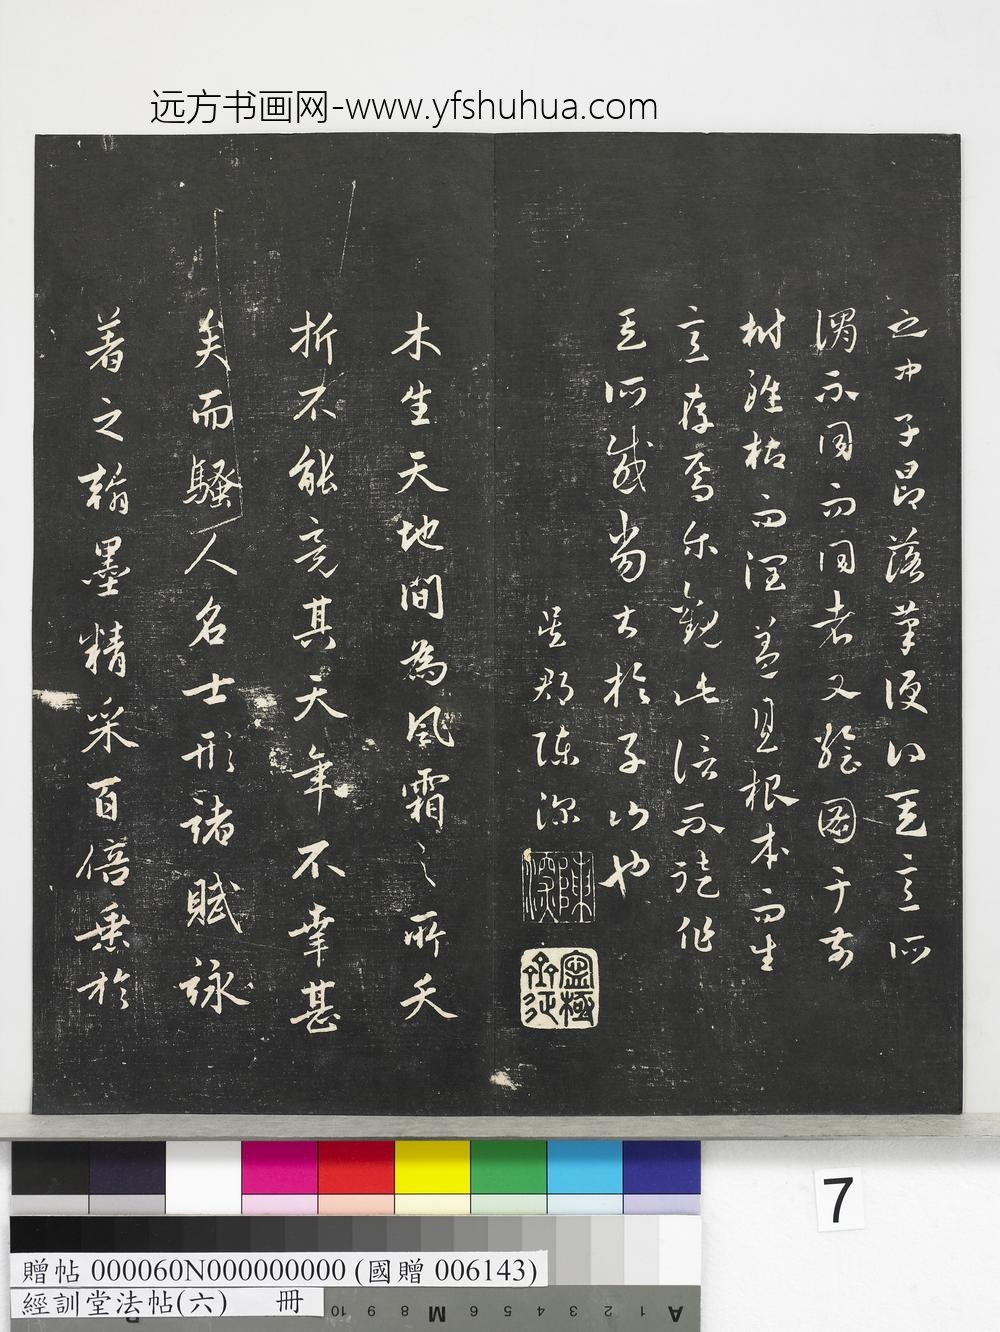 远方书画网-www.yfshuhua.com
之中子昂落筆便得其意所
謂不同而同者又繪圖于前
樹雖枯而潤蓋見根本而生
意存焉爾觀此信不徒作
其所感尚古於子山也
吳郡陳深
陳深
寧極齋
木生天地間為風霜之所夭
折不能竟其天年不幸甚
矣而騷人名士形諸賦詠
著之翰墨精采百倍乗於
7
贈帖 000060N000000000 (國贈 006143)
經訓堂法帖(六) 冊
10 9 8 M 6 5 4 3 2 1 A